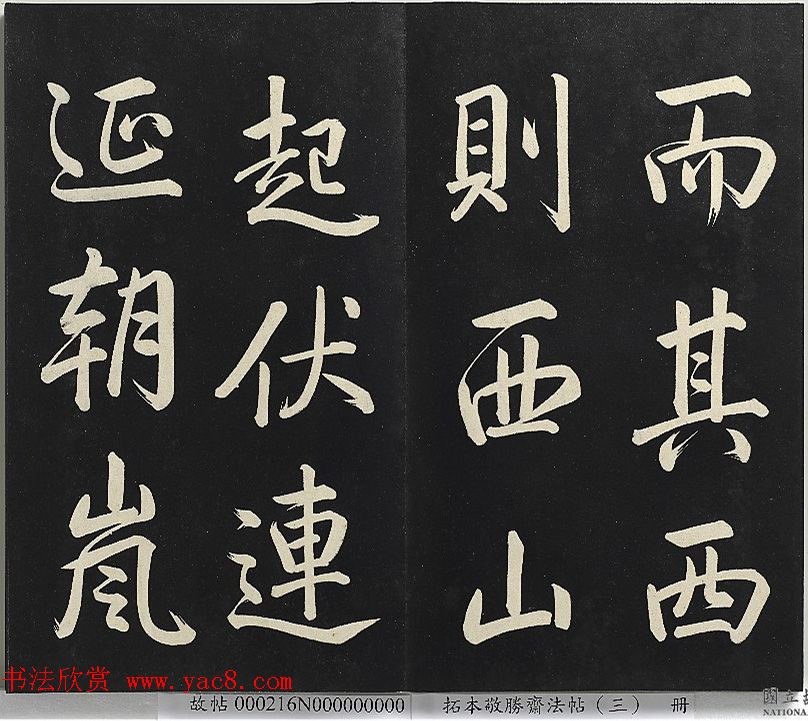 而其西
則西山
起伏連
延朝嵐
书法欣赏 www.yac8.com
故帖 000216N000000000
拓本敬勝齋法帖（三） 册
國立
NATIONA